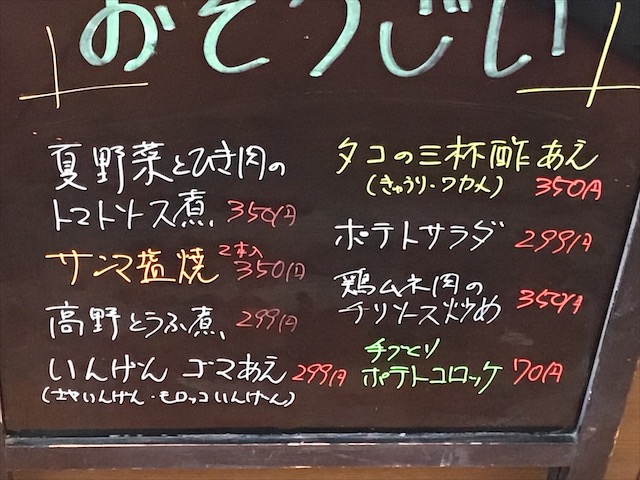 おそうじい
夏野菜とひき肉の
トマトソース煮 350円
サンマ塩焼 2本入 350円
高野とうふ煮 299円
いんげん ゴマあえ 299円
(さやいんげん・モロッコいんげん)
タコの三杯酢あえ
(きゅうり・ワカメ) 350円
ポテトサラダ 299円
鶏ムネ肉の
チリソース炒め 350円
手づくり
ポテトコロッケ 70円